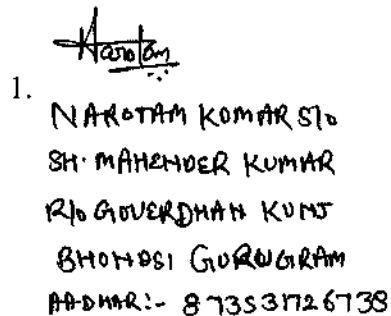 Narotam
1.
NAROTAM KUMAR S/o
SH. MAHENDER KUMAR
R/o GOVERDHAN KUNJ
BHONDSI GURUGRAM
AADHAR:- 873531726738